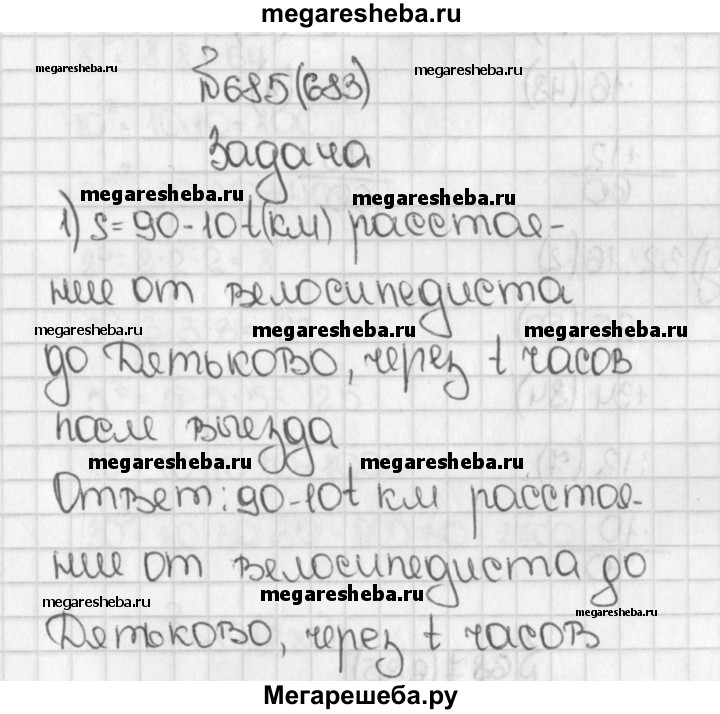 megaresheba.ru
megaresheba.ru megaresheba.ru
№685(683)
Задача
megaresheba.ru megaresheba.ru
1) S=90-10t(км) расстоя-
ние от велосипедиста
megaresheba.ru megaresheba.ru megaresheba.ru
до Дятьково, через t часов
после выезда
megaresheba.ru megaresheba.ru
Ответ: 90-10t км расстоя-
ние от велосипедиста до
megaresheba.ru megaresheba.ru megaresheba.ru
Дятьково, через t часов
Мегарешеба.ру